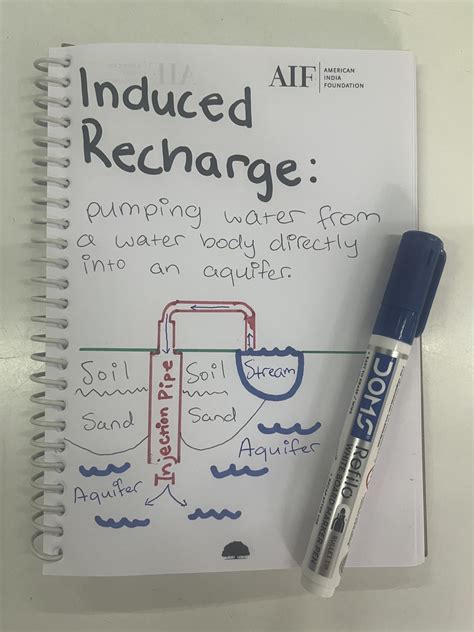 AIF
AMERICAN
INDIA
FOUNDATION
Induced
Recharge:
pumping water from
a water body directly
into an aquifer.
Soil
Soil
Stream
Sand
Sand
Injection Pipe
Aquifer
Aquifer
DOMS
Refilo
WHITE BOARD MARKER PEN